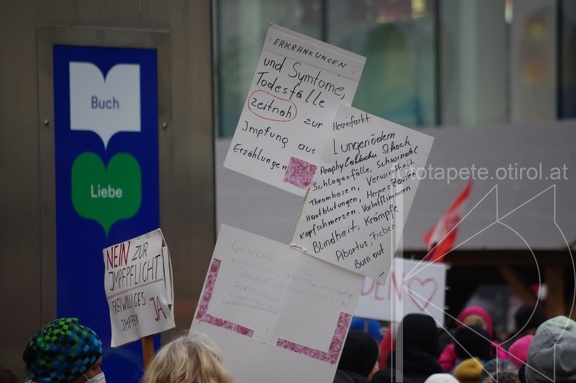 Buch
Liebe
ERKRANKUNGEN
und Symtome,
Todesfälle
zeitnah zur
Impfung aus
Erzählungen
Herzinfarkt
Lungenödem
Schock
Schlaganfälle, Schwindel
Thrombosen,
Hautblutungen, Herpes Zoster
Kopfschmerzen, Vorhofflimmern
Blindheit, Krämpfe
Abortus, Fieber
Burn out
NEIN ZUR
IMPFPFLICHT
FREIWILLIGES JA
IMPFEN
DEN
fototapete.otirol.at